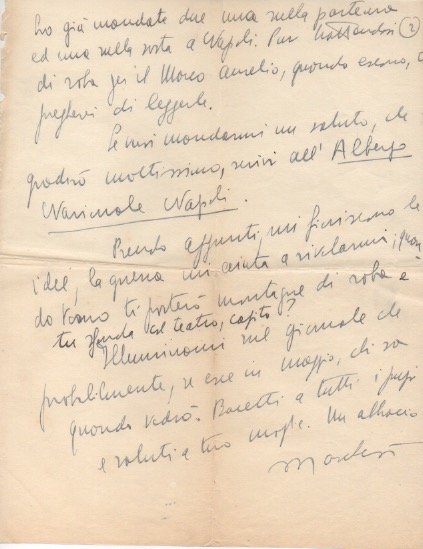 Ho già mandate due una sulla partenza
ed una sulla sosta a Napoli. Pur trattandosi ②
di roba per il Marco Aurelio, quando escono,
pregherei di leggerle.
Se vuoi mandarmi un saluto, che
gradirò moltissimo, scrivi all'Albergo
Nazionale Napoli.
Prendo appunti, mi fioriscono le
idee, la guerra mi aiuta a rivelarmi; quan
do torno ti porterò montagne di roba e
tu sfonda col teatro, capito?
Illuminami sul giornale che
probabilmente, se esce in maggio, chi sa
quando vedrò. Bacetti a tutti i pupi
e saluti a tua moglie. Un abbraccio